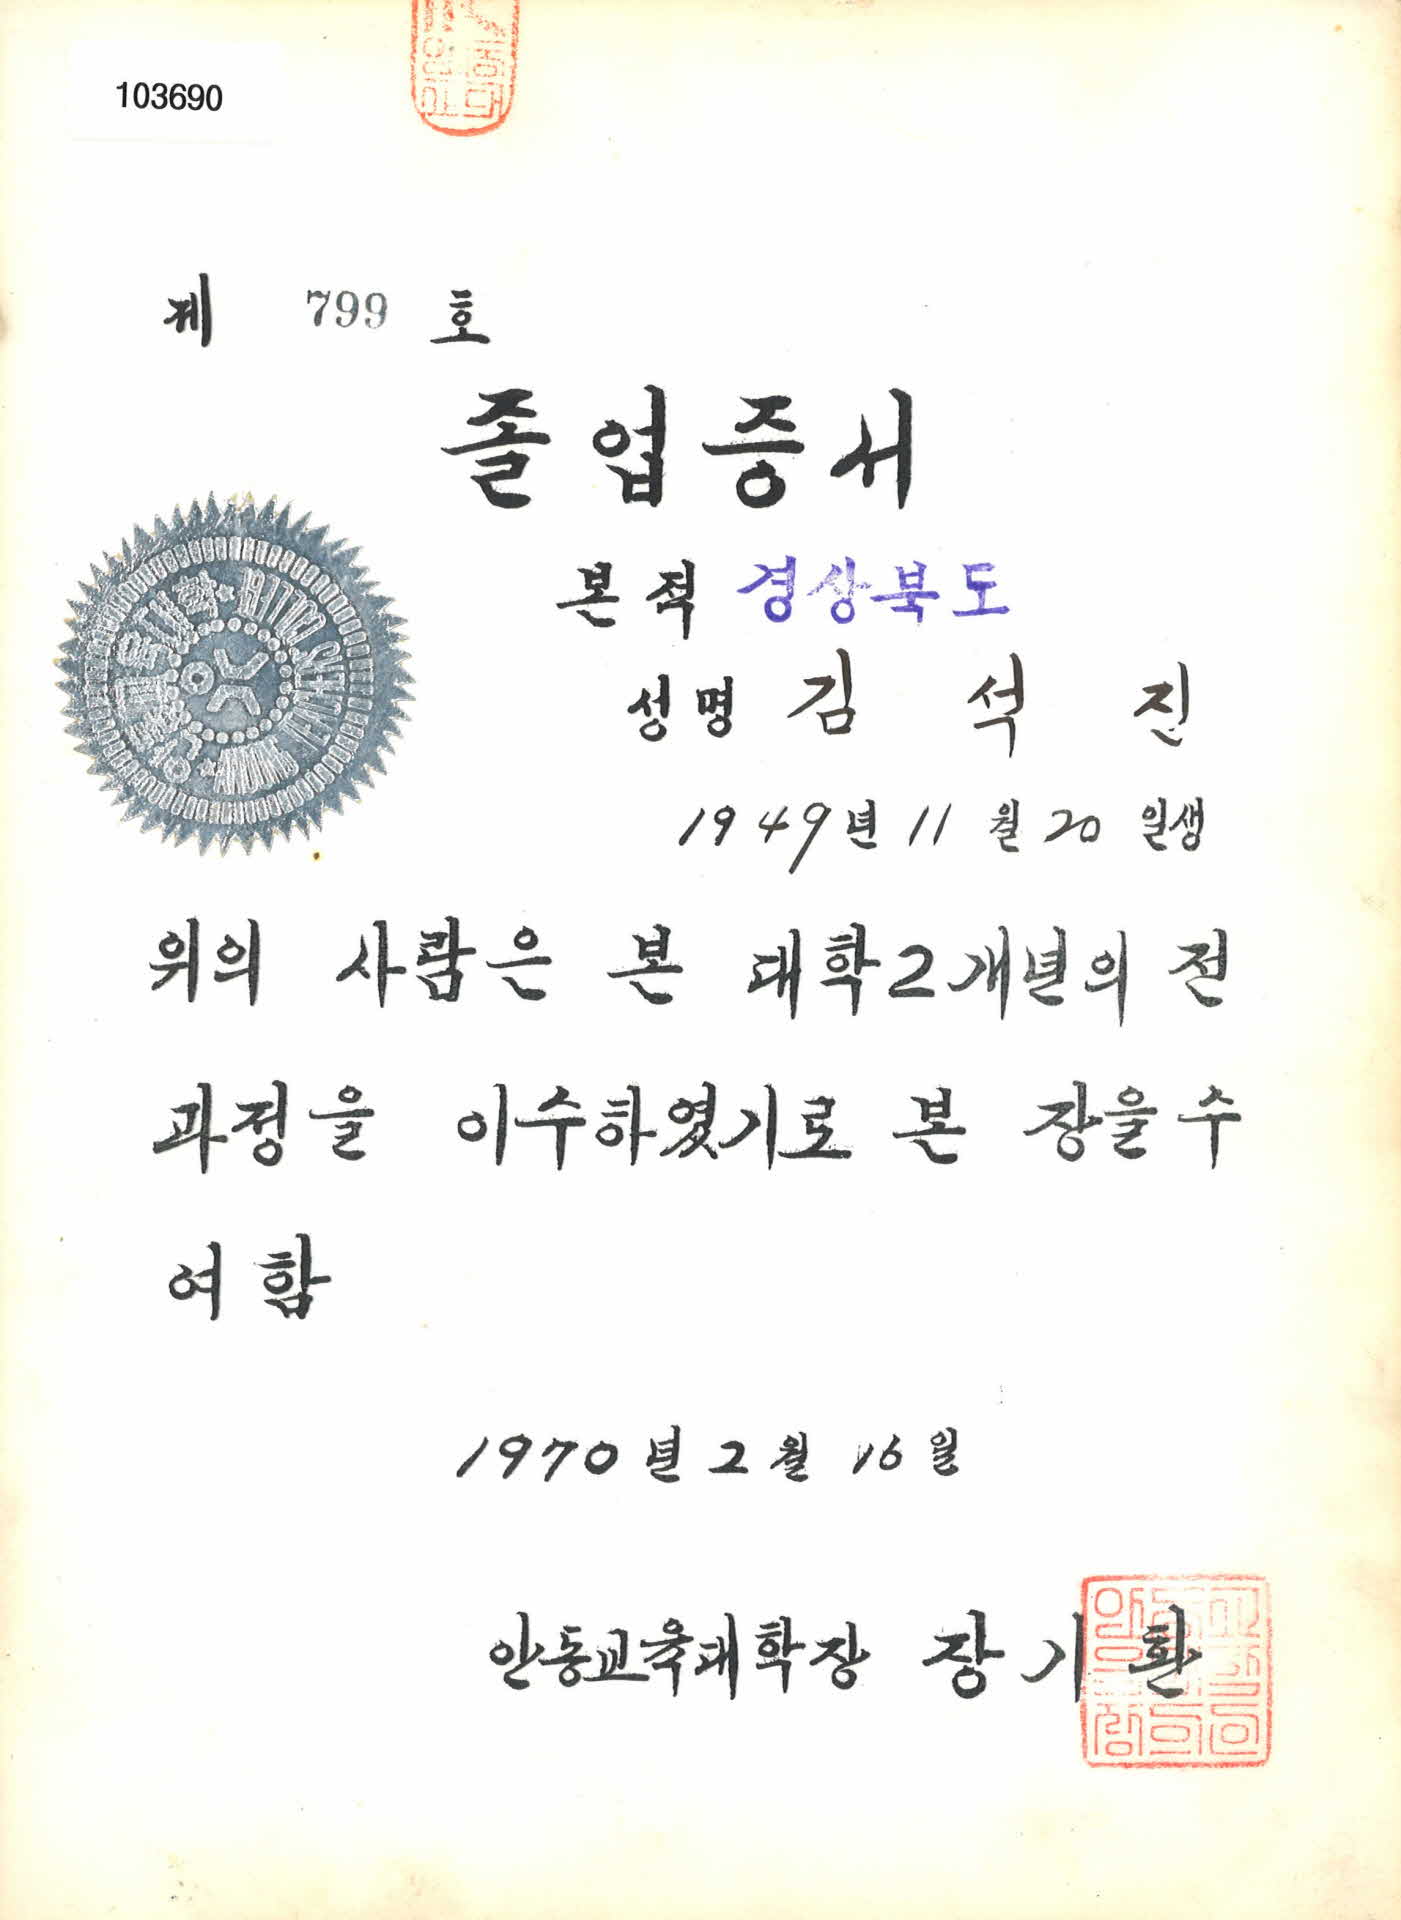 103690
제 799 호
졸업증서
본적 경상북도
성명 김 석 진
1949년 11월 20일생
위의 사람은 본 대학2개년의 전
과정을 이수하였기로 본 장을 수
여함
1970년 2월 16일
안동교육대학장 장기환